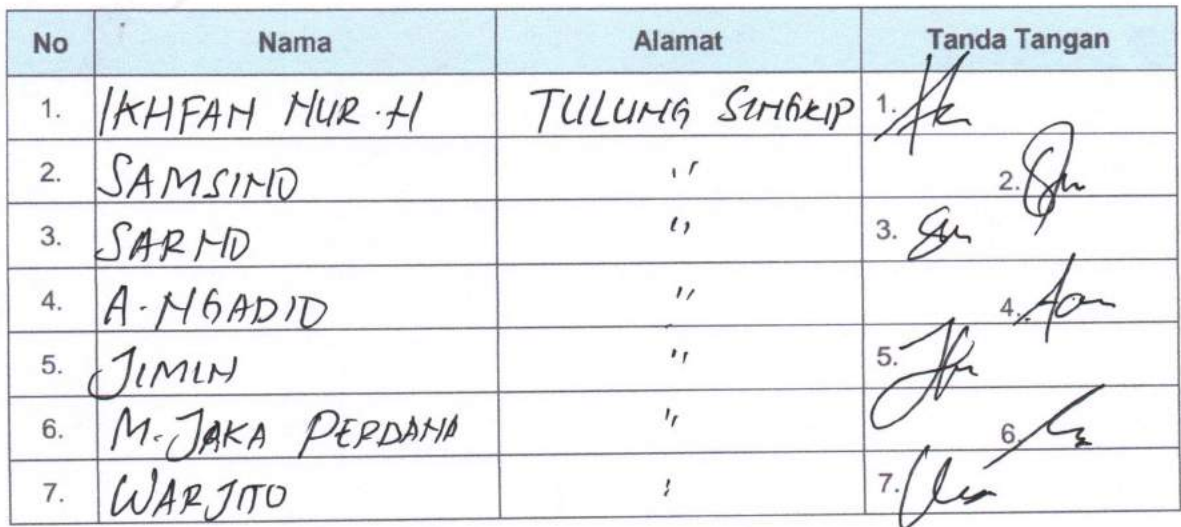 No Nama Alamat Tanda Tangan
1. IKHFAN NUR.H TULUNG SINGKIP 1.
2. SAMSINO " 2.
3. SARNO " 3.
4. A. NGADIO " 4.
5. JIMIN " 5.
6. M. JAKA PERDANA " 6.
7. WARJITO " 7.